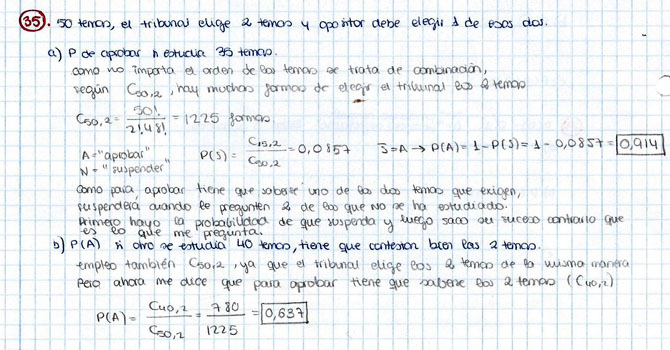 35. 50 temas, el tribunal elige 2 temas y opositor debe elegir 1 de esos dos.
a) P de aprobar si estudia 35 temas.
como no importa el orden de los temas se trata de combinación,
según C50,2 , hay muchas formas de elegir el tribunal los 2 temas
C50,2 = 50! / 2! 48! = 1225 formas
A = "aprobar"
N = "suspender"
P(S) = C15,2 / C50,2 = 0,0857   S̄ = A → P(A) = 1 - P(S) = 1 - 0,0857 = 0,914
Como para aprobar tiene que saberse uno de los dos temas que exigen,
suspenderá cuando le pregunten 2 de los que no se ha estudiado.
Primero hayo la probabilidad de que suspenda y luego saco su suceso contrario que
es lo que me pregunta.
b) P(A) si otro se estudia 40 temas, tiene que contestar bien los 2 temas.
empleo también C50,2 , ya que el tribunal elige los 2 temas de la misma manera
Pero ahora me dice que para aprobar tiene que saberse los 2 temas (C40,2)
P(A) = C40,2 / C50,2 = 780 / 1225 = 0,637